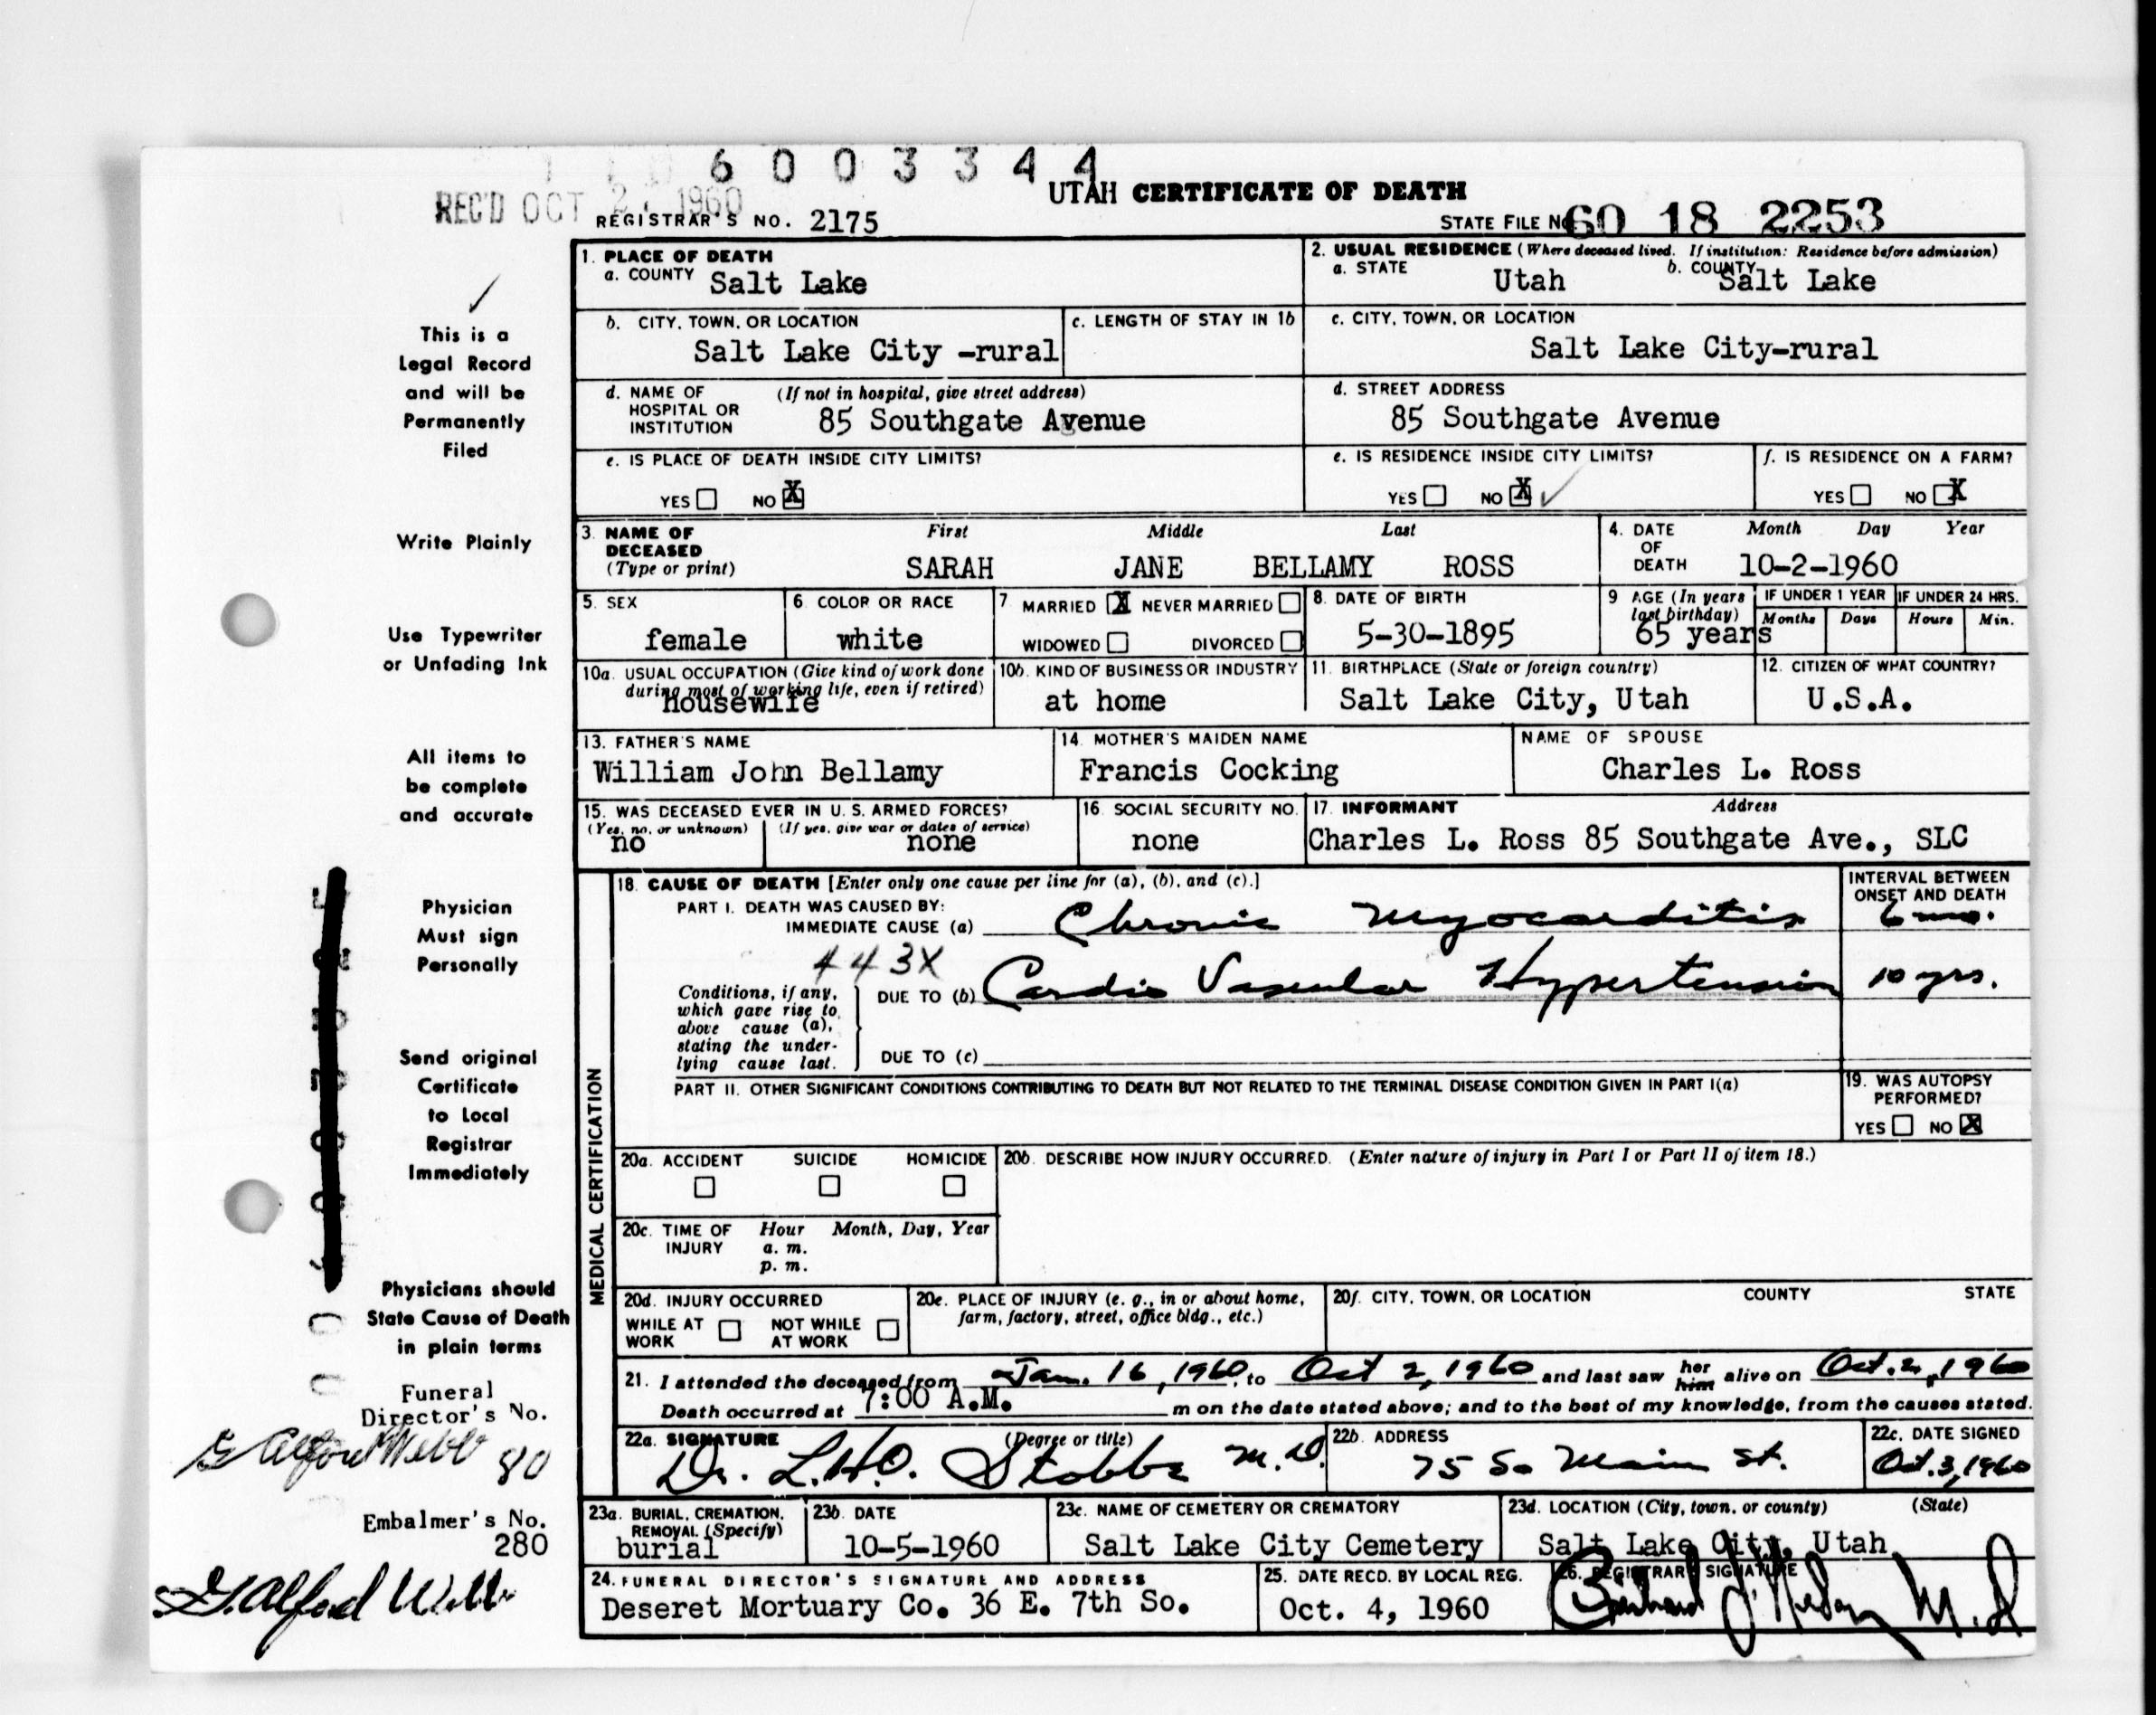 6 0 0 3 3 4 4
REC'D OCT 2 1960
UTAH CERTIFICATE OF DEATH
REGISTRAR'S NO. 2175
STATE FILE No 60 18 2253
This is a
Legal Record
and will be
Permanently
Filed
Write Plainly
Use Typewriter
or Unfading Ink
All items to
be complete
and accurate
Physician
Must sign
Personally
Send original
Certificate
to Local
Registrar
Immediately
Physicians should
State Cause of Death
in plain terms
Funeral
Director's No.
80
Embalmer's No.
280
G. Alford Webb
1. PLACE OF DEATH
a. COUNTY Salt Lake
2. USUAL RESIDENCE (Where deceased lived. If institution: Residence before admission)
a. STATE Utah b. COUNTY Salt Lake
b. CITY, TOWN, OR LOCATION Salt Lake City -rural
c. LENGTH OF STAY IN 1b
c. CITY, TOWN, OR LOCATION Salt Lake City-rural
d. NAME OF HOSPITAL OR INSTITUTION (If not in hospital, give street address) 85 Southgate Avenue
d. STREET ADDRESS 85 Southgate Avenue
e. IS PLACE OF DEATH INSIDE CITY LIMITS?
YES NO X
e. IS RESIDENCE INSIDE CITY LIMITS?
YES NO X
f. IS RESIDENCE ON A FARM?
YES NO X
3. NAME OF DECEASED (Type or print) First Middle Last
SARAH JANE BELLAMY ROSS
4. DATE OF DEATH Month Day Year
10-2-1960
5. SEX female
6. COLOR OR RACE white
7. MARRIED X NEVER MARRIED
WIDOWED DIVORCED
8. DATE OF BIRTH 5-30-1895
9. AGE (In years last birthday) 65 years
IF UNDER 1 YEAR Months Days
IF UNDER 24 HRS. Hours Min.
10a. USUAL OCCUPATION (Give kind of work done during most of working life, even if retired) housewife
10b. KIND OF BUSINESS OR INDUSTRY at home
11. BIRTHPLACE (State or foreign country) Salt Lake City, Utah
12. CITIZEN OF WHAT COUNTRY? U.S.A.
13. FATHER'S NAME William John Bellamy
14. MOTHER'S MAIDEN NAME Francis Cocking
NAME OF SPOUSE Charles L. Ross
15. WAS DECEASED EVER IN U. S. ARMED FORCES?
(Yes, no, or unknown) no (If yes, give war or dates of service) none
16. SOCIAL SECURITY NO. none
17. INFORMANT Address
Charles L. Ross 85 Southgate Ave., SLC
MEDICAL CERTIFICATION
18. CAUSE OF DEATH [Enter only one cause per line for (a), (b), and (c).]
INTERVAL BETWEEN ONSET AND DEATH
PART I. DEATH WAS CAUSED BY:
IMMEDIATE CAUSE (a) Chronic Myocarditis 6 mo.
443X
Conditions, if any, which gave rise to above cause (a), stating the underlying cause last.
DUE TO (b) Cardio Vascular Hypertension 10 yrs.
DUE TO (c)
PART II. OTHER SIGNIFICANT CONDITIONS CONTRIBUTING TO DEATH BUT NOT RELATED TO THE TERMINAL DISEASE CONDITION GIVEN IN PART I(a)
19. WAS AUTOPSY PERFORMED?
YES NO X
20a. ACCIDENT SUICIDE HOMICIDE
20b. DESCRIBE HOW INJURY OCCURRED. (Enter nature of injury in Part I or Part II of item 18.)
20c. TIME OF INJURY Hour Month, Day, Year
a. m.
p. m.
20d. INJURY OCCURRED
WHILE AT WORK NOT WHILE AT WORK
20e. PLACE OF INJURY (e. g., in or about home, farm, factory, street, office bldg., etc.)
20f. CITY, TOWN, OR LOCATION COUNTY STATE
21. I attended the deceased from Jan. 16, 1960, to Oct 2, 1960 and last saw her him alive on Oct. 2, 1960
Death occurred at 7:00 A.M. m on the date stated above; and to the best of my knowledge, from the causes stated.
22a. SIGNATURE (Degree or title) Dr. L.H.O. Stobbe M.D.
22b. ADDRESS 75 So Main St.
22c. DATE SIGNED Oct. 3, 1960
23a. BURIAL, CREMATION, REMOVAL (Specify) burial
23b. DATE 10-5-1960
23c. NAME OF CEMETERY OR CREMATORY Salt Lake City Cemetery
23d. LOCATION (City, town, or county) (State) Salt Lake City, Utah
24. FUNERAL DIRECTOR'S SIGNATURE AND ADDRESS
Deseret Mortuary Co. 36 E. 7th So.
25. DATE RECD. BY LOCAL REG. Oct. 4, 1960
26. REGISTRAR'S SIGNATURE
M.D